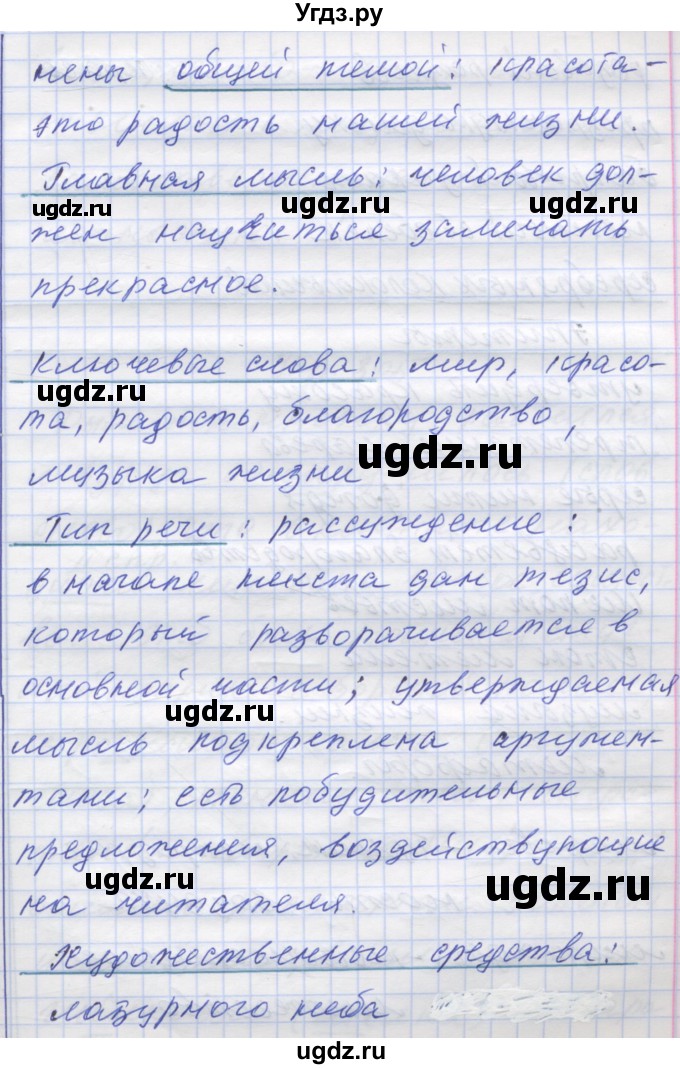 Угдз.ру
мены общей темой: красота -
это радость нашей жизни.
Главная мысль: человек дол-
ugdz.ru ugdz.ru ugdz.ru
жен научиться замечать
прекрасное.
Ключевые слова: мир, красо-
ugdz.ru
та, радость, благородство,
ugdz.ru
музыка жизни
Тип речи: рассуждение:
в начале текста дан тезис,
который разворачивается в
основной части; утверждаемая
ugdz.ru
мысль подкреплена аргумен-
тами; есть побудительные
предложения, воздействующие
ugdz.ru ugdz.ru
на читателя.
Художественные средства:
лазурного неба
ugdz.ru